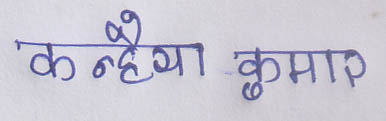 कन्हैया कुमार